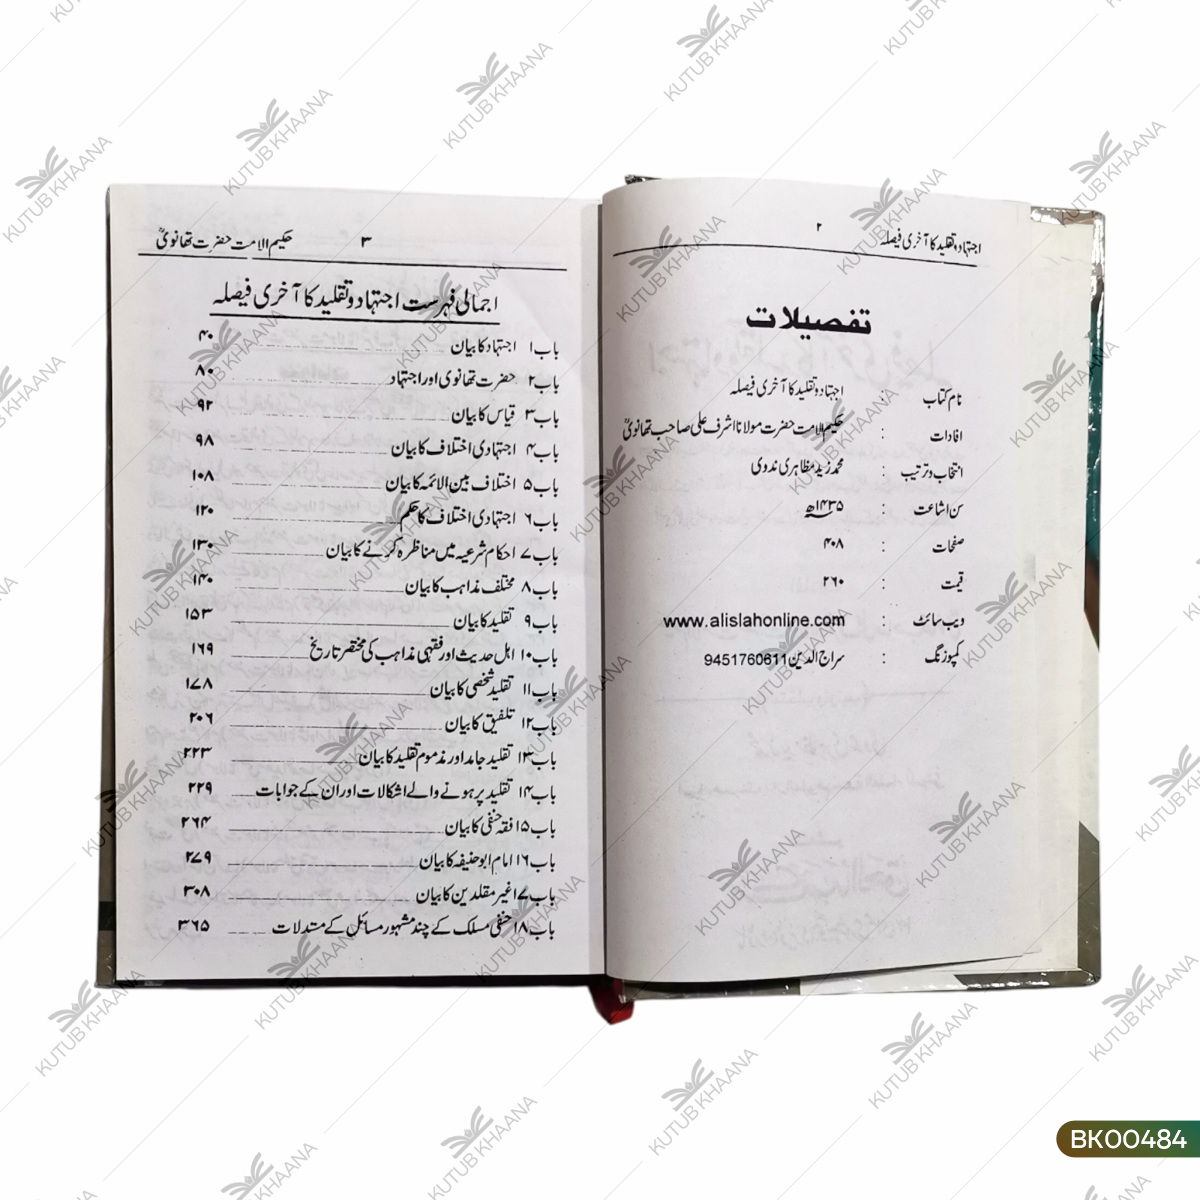 اجتہاد و تقلید کا آخری فیصلہ
۲
تفصیلات
نام کتاب : اجتہاد و تقلید کا آخری فیصلہ
افادات : حکیم الامت حضرت مولانا اشرف علی صاحب تھانویؒ
انتخاب و ترتیب : محمد زید مظاہری ندوی
سن اشاعت : ۱۴۳۵ھ
صفحات : ۴۰۸
قیمت : ۲۶۰
ویب سائٹ : www.alislahonline.com
کمپوزنگ : سراج الدین 9451760611
۳
حکیم الامت حضرت تھانویؒ
اجمالی فہرست اجتہاد و تقلید کا آخری فیصلہ
باب۱ اجتہاد کا بیان ۴۰
باب۲ حضرت تھانوی اور اجتہاد ۸۰
باب۳ قیاس کا بیان ۹۲
باب۴ اجتہادی اختلاف کا بیان ۹۸
باب۵ اختلاف بین الائمہ کا بیان ۱۰۸
باب۶ اجتہادی اختلاف کا حکم ۱۲۰
باب۷ احکام شرعیہ میں مناظرہ کرنے کا بیان ۱۳۰
باب۸ مختلف مذاہب کا بیان ۱۴۰
باب۹ تقلید کا بیان ۱۵۳
باب۱۰ اہل حدیث اور فقہی مذاہب کی مختصر تاریخ ۱۶۹
باب۱۱ تقلید شخصی کا بیان ۱۷۸
باب۱۲ تلفیق کا بیان ۲۰۶
باب۱۳ تقلید جامد اور مذموم تقلید کا بیان ۲۲۳
باب۱۴ تقلید پر ہونے والے اشکالات اور ان کے جوابات ۲۲۹
باب۱۵ فقہ حنفی کا بیان ۲۶۴
باب۱۶ امام ابو حنیفہ کا بیان ۲۷۹
باب۱۷ غیر مقلدین کا بیان ۳۰۸
باب۱۸ حنفی مسلک کے چند مشہور مسائل کے مستدلات ۳۶۵
KUTUB KHAANA
BK00484